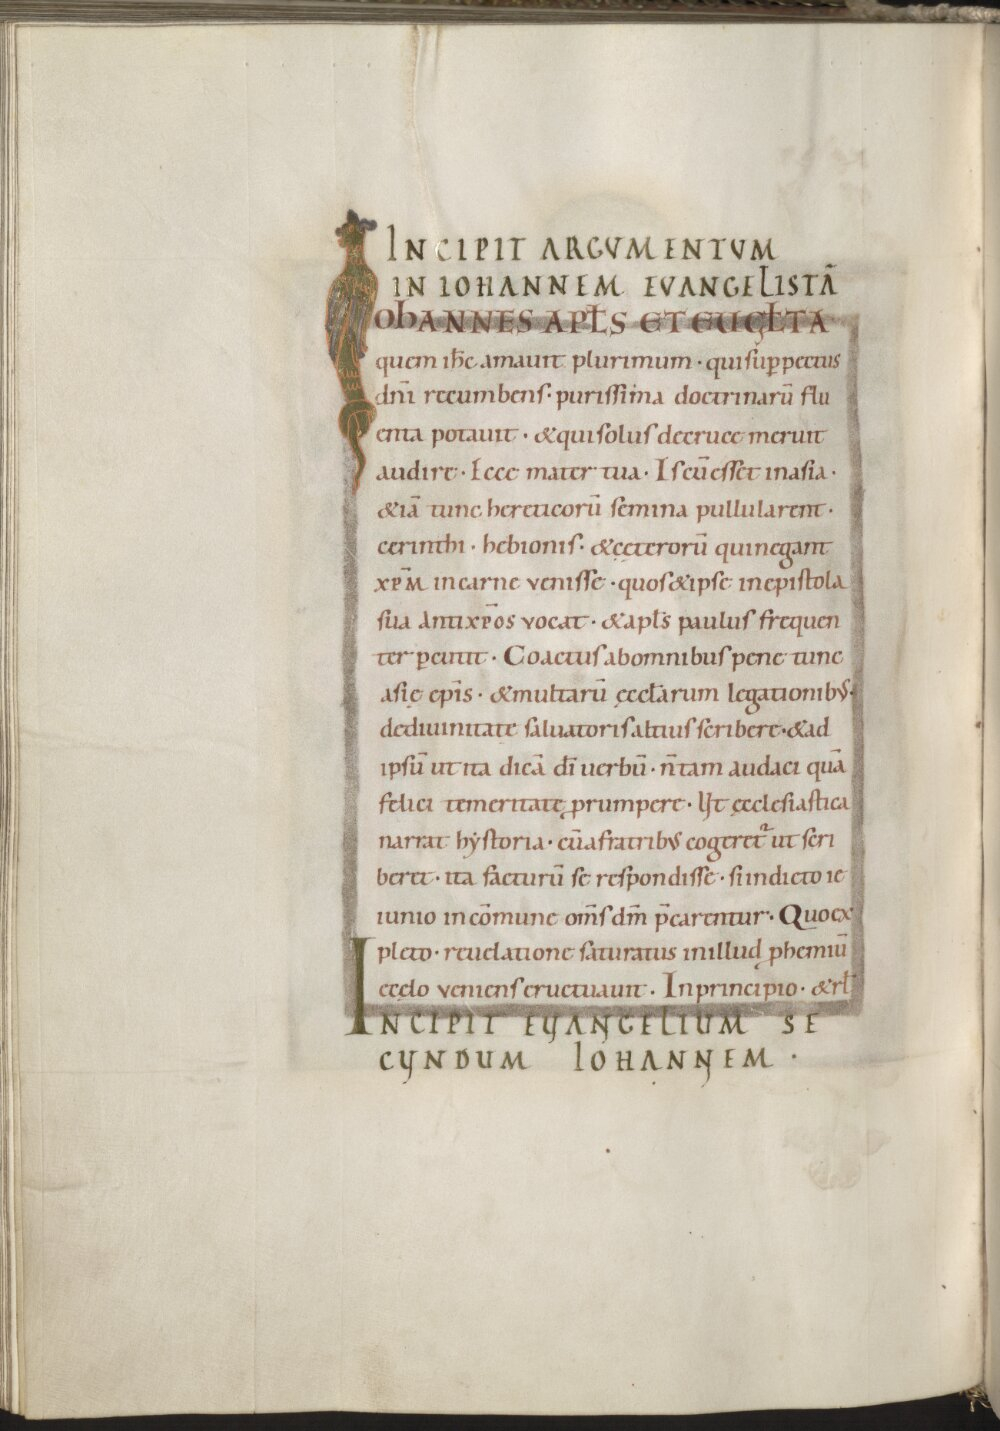 INCIPIT ARGVMENTVM
IN IOHANNEM EVANGELISTĀ
IOhANNES APƚS ET EUGƚTA
quem ih̄c amauit plurimum · qui sup̱ pectus
dn̄i recumbens · purissima doctrinarū flu
enta potauit · & qui solus de cruce meruit
audire · Ecce mater tua · Is cū esset in asia ·
& iā tunc hereticorū semina pullularent ·
cerinthi · hebionis · & cęterorū qui negant
xp̄m in carne venisse · quos & ipse in epistola
sua Antixp̄os vocat · & apƚs paulus frequen
ter p̱cutit · Coactus ab omnibus pene tunc
asię ep̄is · & multarū ęccƚarum legationibus ·
de diuinitate saluatoris altius scribere · & ad
ipsū ut ita dicā dī uerbū · n̄ tam audaci quā
felici temeritate prumpere · Ut ęcclesiastica
narrat hẏstoria · cū a fratribus cogeretur ut scri
beret · ita facturū se respondisse · si indicto ie
iunio in cōmune om̄s dm̄ p̄carentur · Quo ex
pleto · reuelatione saturatus in illud phemiū
e cęlo veniens eructuauit · In principio · & rƚ
INCIPIT EVANGELIUM SE
CVNDUM IOHANNEM ·